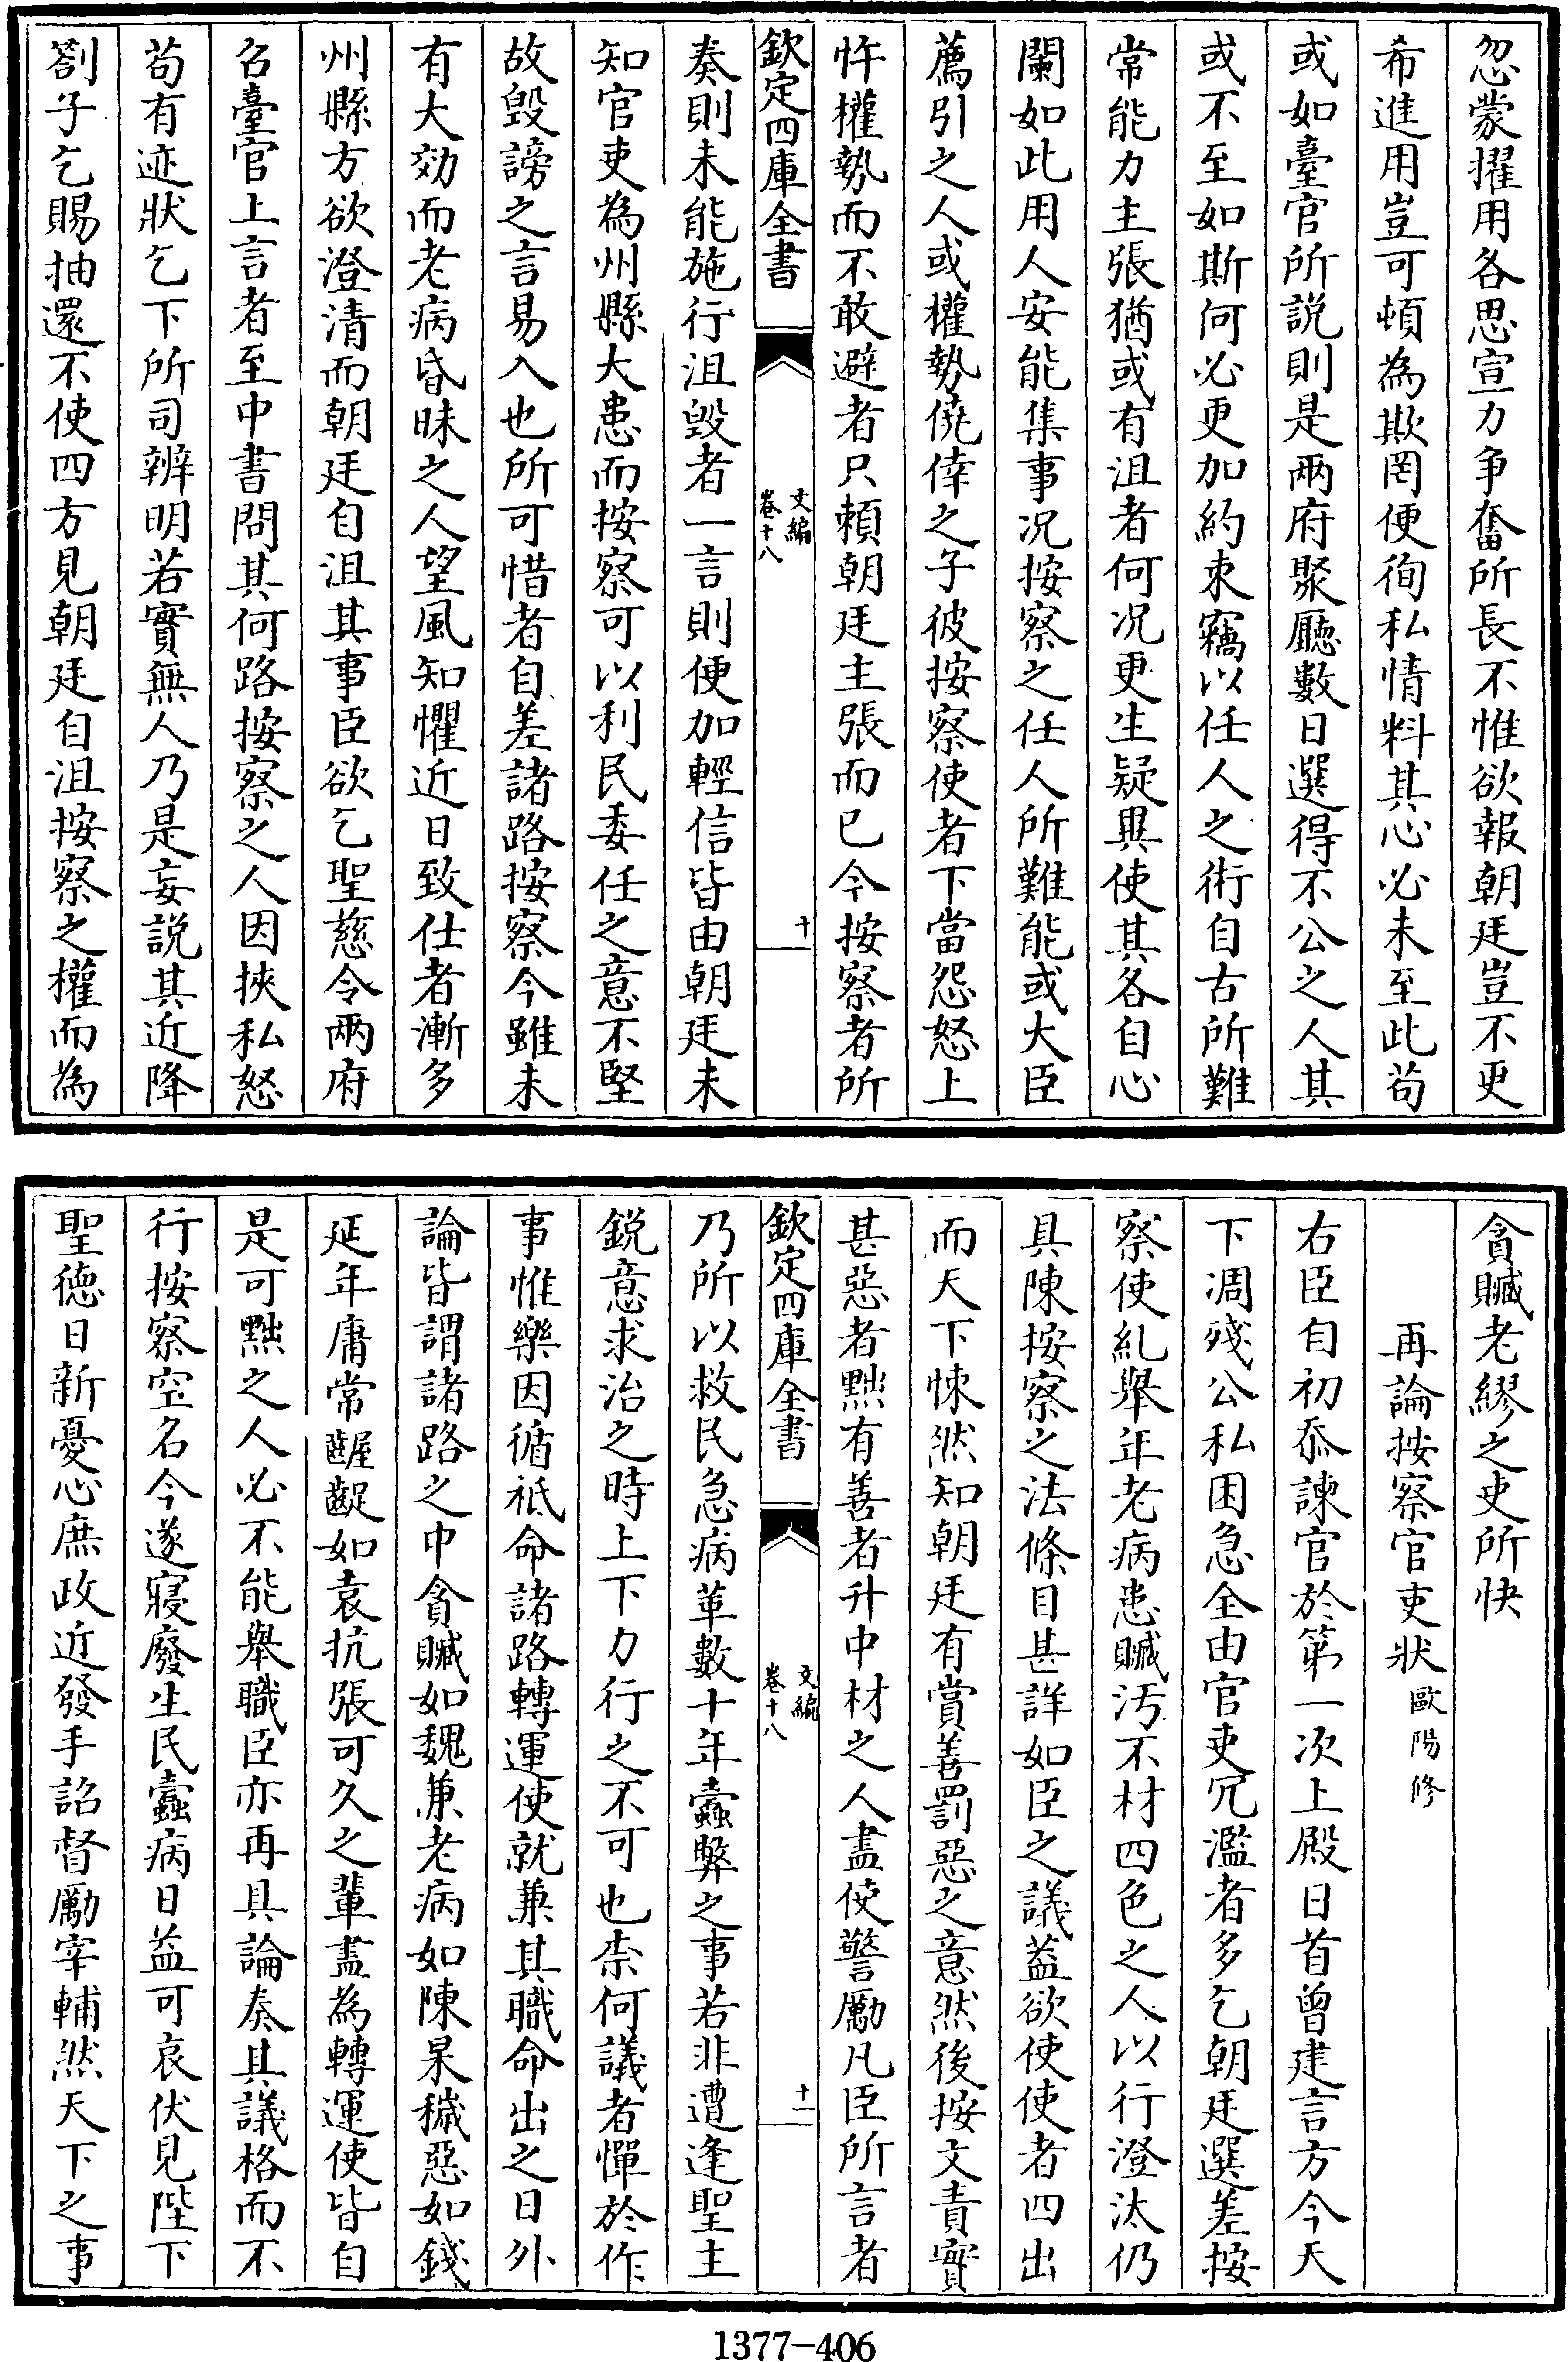 忽蒙擢用各思宣力争奮所長不惟欲報朝廷豈不更
希進用豈可頓為欺罔便徇私情料其心必未至此苟
或如臺官所説則是兩府聚廳數日選得不公之人其
或不至如斯何必更加約束竊以任人之術自古所難
常能力主張猶或有沮者何况更生疑異使其各自心
闌如此用人安能集事况按察之任人所難能或大臣
薦引之人或權勢僥倖之子彼按察使者下當怨怒上
忤權勢而不敢避者只賴朝廷主張而已今按察者所
欽定四庫全書
文編
卷十八
十
奏則未能施行沮毁者一言則便加輕信皆由朝廷未
知官吏為州縣大患而按察可以利民委任之意不堅
故毁謗之言易入也所可惜者自差諸路按察今雖未
有大効而老病昏昧之人望風知懼近日致仕者漸多
州縣方欲澄清而朝廷自沮其事臣欲乞聖慈令兩府
召臺官上言者至中書問其何路按察之人因挾私怒
苟有迹狀乞下所司辨明若實無人乃是妄説其近降
劄子乞賜抽還不使四方見朝廷自沮按察之權而為
貪贓老繆之吏所快
再論按察官吏狀 歐陽修
右臣自初忝諫官於第一次上殿日首曾建言方今天
下凋殘公私困急全由官吏冗濫者多乞朝廷選差按
察使糺舉年老病患贓污不材四色之人以行澄汰仍
具陳按察之法條目甚詳如臣之議葢欲使使者四出
而天下悚然知朝廷有賞善罰惡之意然後按文責實
甚惡者黜有善者升中材之人盡使警勵凡臣所言者
欽定四庫全書
文編
卷十八
十一
乃所以救民急病革數十年蠹弊之事若非遭逢聖主
鋭意求治之時上下力行之不可也柰何議者憚於作
事惟樂因循祗命諸路轉運使就兼其職命出之日外
論皆謂諸路之中貪贓如魏兼老病如陳杲穢惡如錢
延年庸常齷齪如袁抗張可久之輩盡為轉運使皆自
是可黜之人必不能舉職臣亦再具論奏其議格而不
行按察空名今遂寢廢生民蠹病日益可哀伏見陛下
聖德日新憂心庶政近發手詔督勵宰輔然天下之事
1377-406